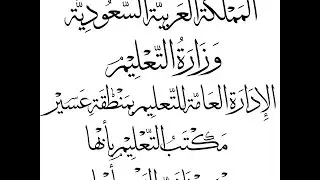 المَمْلَكَةُ العَرَبِيَّةُ السَّعُودِيَّةُ
وَزَارَةُ التَّعْلِيمِ
الإِدَارَةُ العَامَّةُ لِلتَّعْلِيمِ بِمَنْطَقَةِ عَسِيرَ
مَكْتَبُ التَّعْلِيمِ بِأَبْهَا